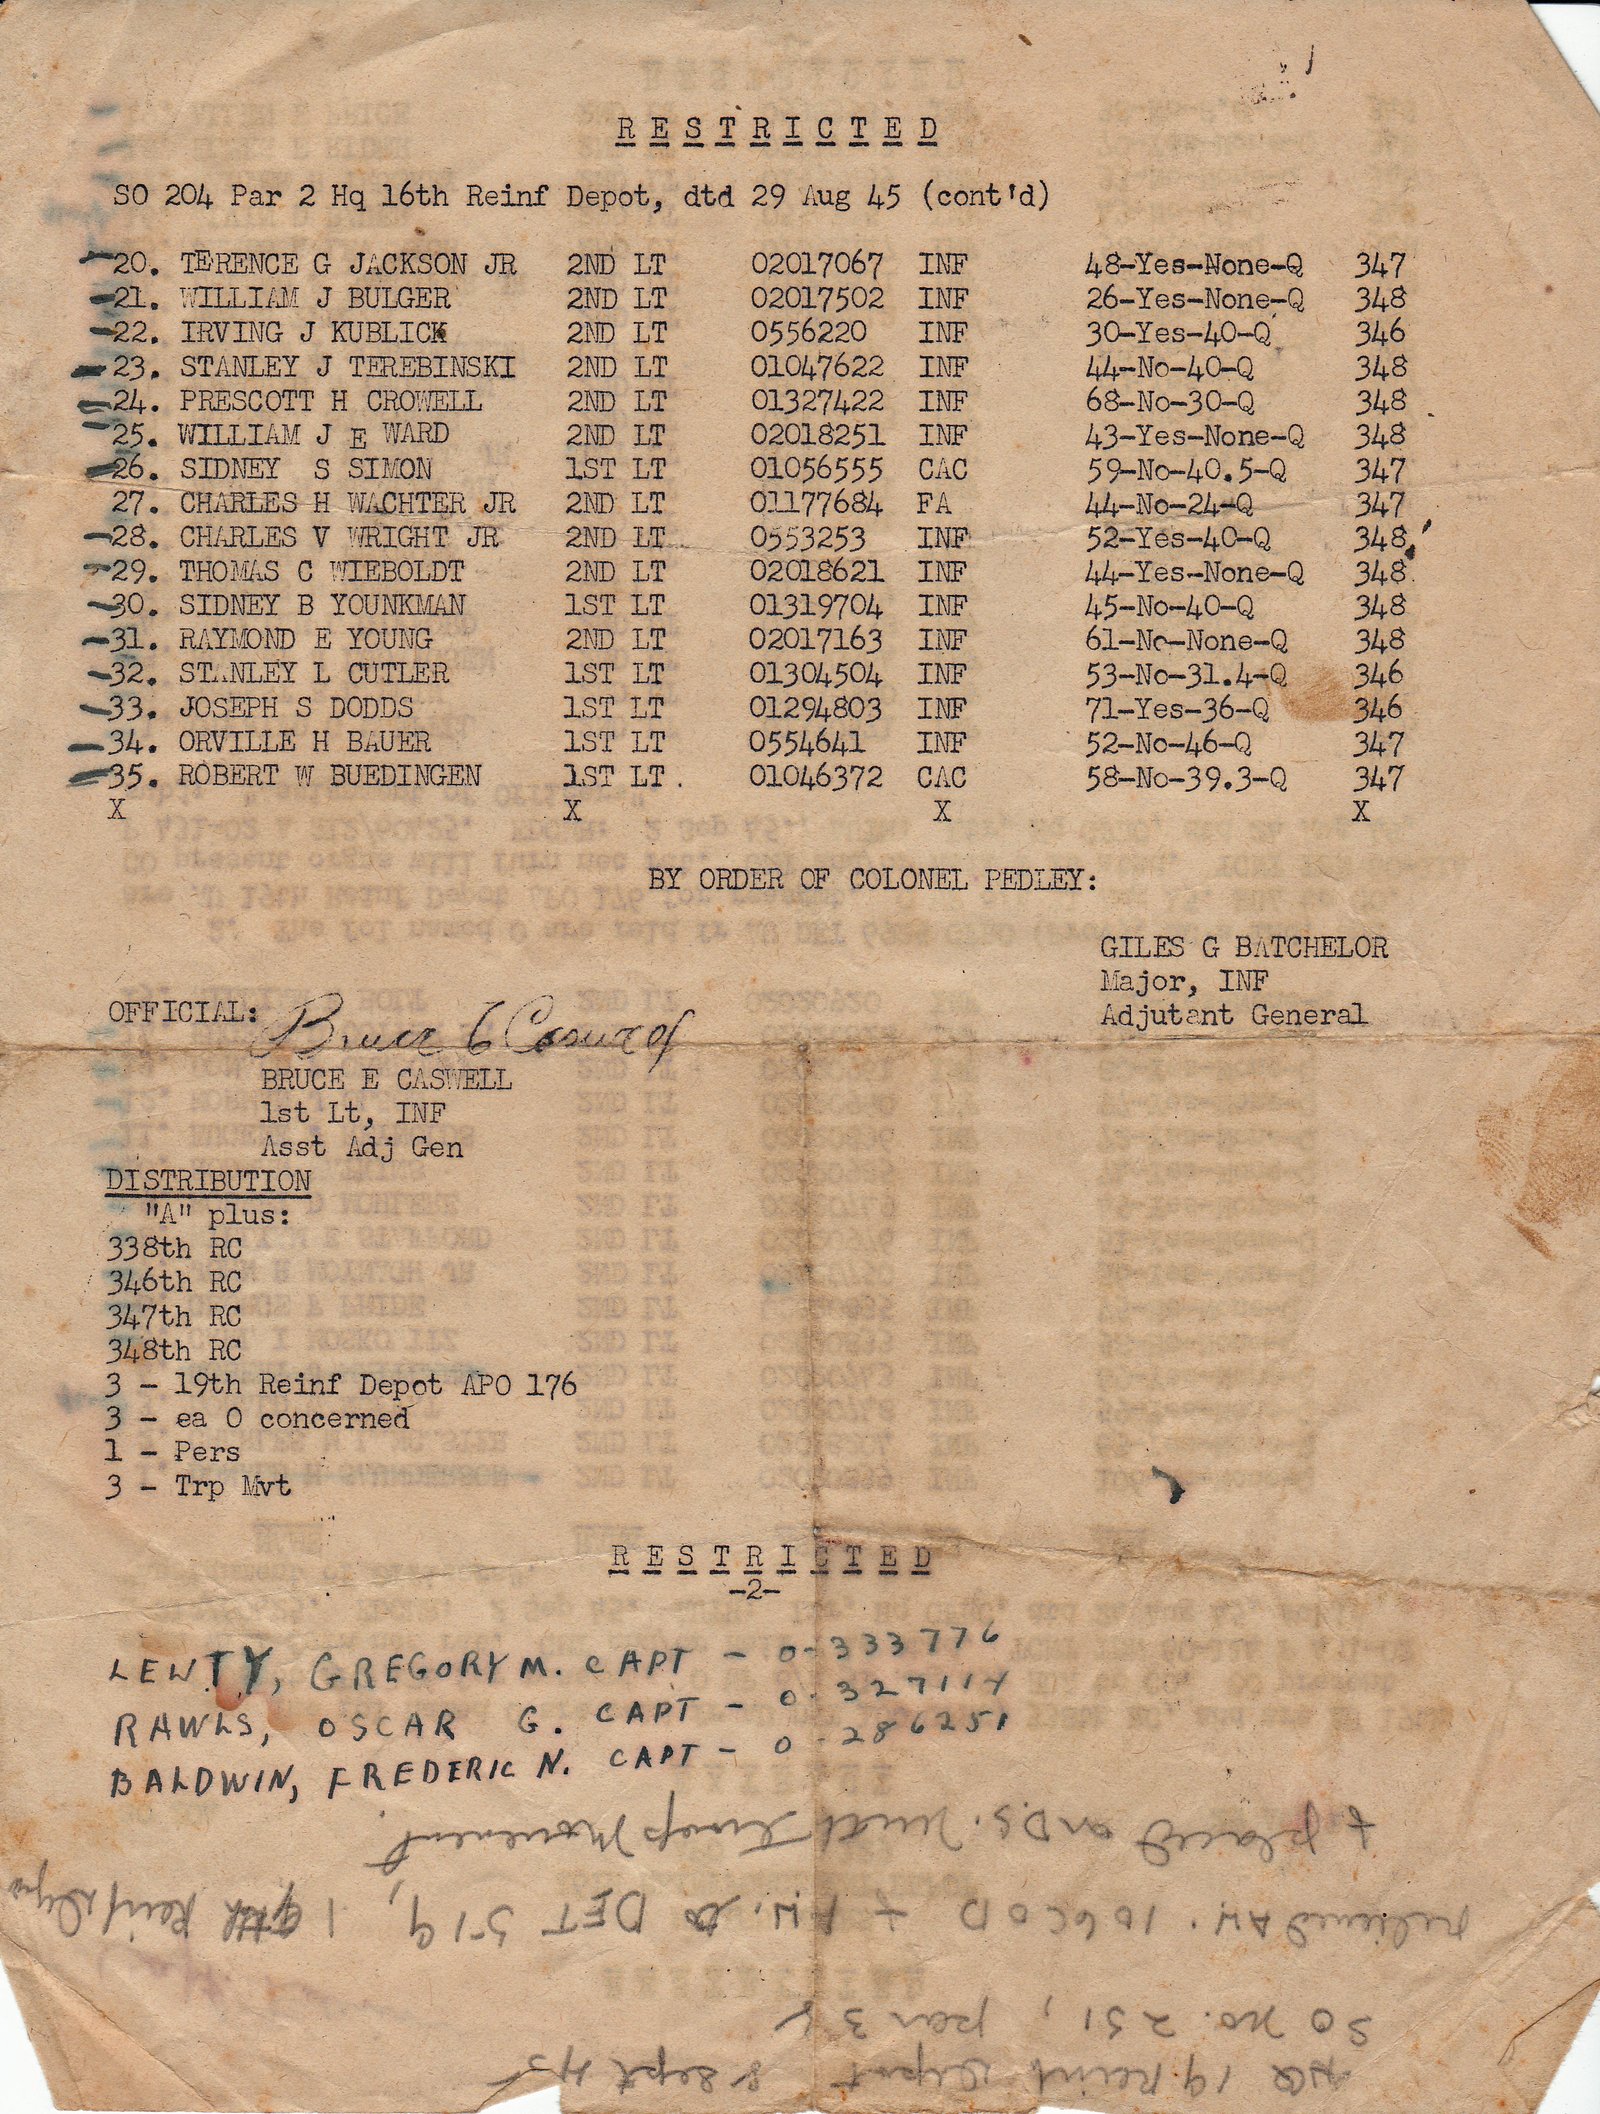 R E S T R I C T E D
SO 204 Par 2 Hq 16th Reinf Depot, dtd 29 Aug 45 (cont'd)
20. TERENCE G JACKSON JR 2ND LT 02017067 INF 48-Yes-None-Q 347
21. WILLIAM J BULGER 2ND LT 02017502 INF 26-Yes-None-Q 348
22. IRVING J KUBLICK 2ND LT 0556220 INF 30-Yes-40-Q 346
23. STANLEY J TEREBINSKI 2ND LT 01047622 INF 44-No-40-Q 348
24. PRESCOTT H CROWELL 2ND LT 01327422 INF 68-No-30-Q 348
25. WILLIAM J E WARD 2ND LT 02018251 INF 43-Yes-None-Q 348
26. SIDNEY S SIMON 1ST LT 01056555 CAC 59-No-40.5-Q 347
27. CHARLES H WACHTER JR 2ND LT 01177684 FA 44-No-24-Q 347
28. CHARLES V WRIGHT JR 2ND LT 0553253 INF 52-Yes-40-Q 348
29. THOMAS C WIEBOLDT 2ND LT 02018621 INF 44-Yes-None-Q 348
30. SIDNEY B YOUNKMAN 1ST LT 01319704 INF 45-No-40-Q 348
31. RAYMOND E YOUNG 2ND LT 02017163 INF 61-No-None-Q 348
32. STANLEY L CUTLER 1ST LT 01304504 INF 53-No-31.4-Q 346
33. JOSEPH S DODDS 1ST LT 01294803 INF 71-Yes-36-Q 346
34. ORVILLE H BAUER 1ST LT 0554641 INF 52-No-46-Q 347
35. ROBERT W BUEDINGEN 1ST LT. 01046372 CAC 58-No-39.3-Q 347
X X X X
BY ORDER OF COLONEL PEDLEY:
GILES G BATCHELOR
Major, INF
Adjutant General
OFFICIAL: Bruce E Caswell
BRUCE E CASWELL
1st Lt, INF
Asst Adj Gen
DISTRIBUTION
"A" plus:
338th RC
346th RC
347th RC
348th RC
3 - 19th Reinf Depot APO 176
3 - ea O concerned
1 - Pers
3 - Trp Mvt
R E S T R I C T E D
-2-
LENTY, GREGORY M. CAPT - O-333776
RAWLS, OSCAR G. CAPT - O-327114
BALDWIN, FREDERIC N. CAPT - O-286251
HQ 19 Reinf Depot 8 Sept 45
SO No. 251, par 38
relieved 106 COD + DET 519, 19th Reinf Depo
+ placed on D.S. with Troop Movement